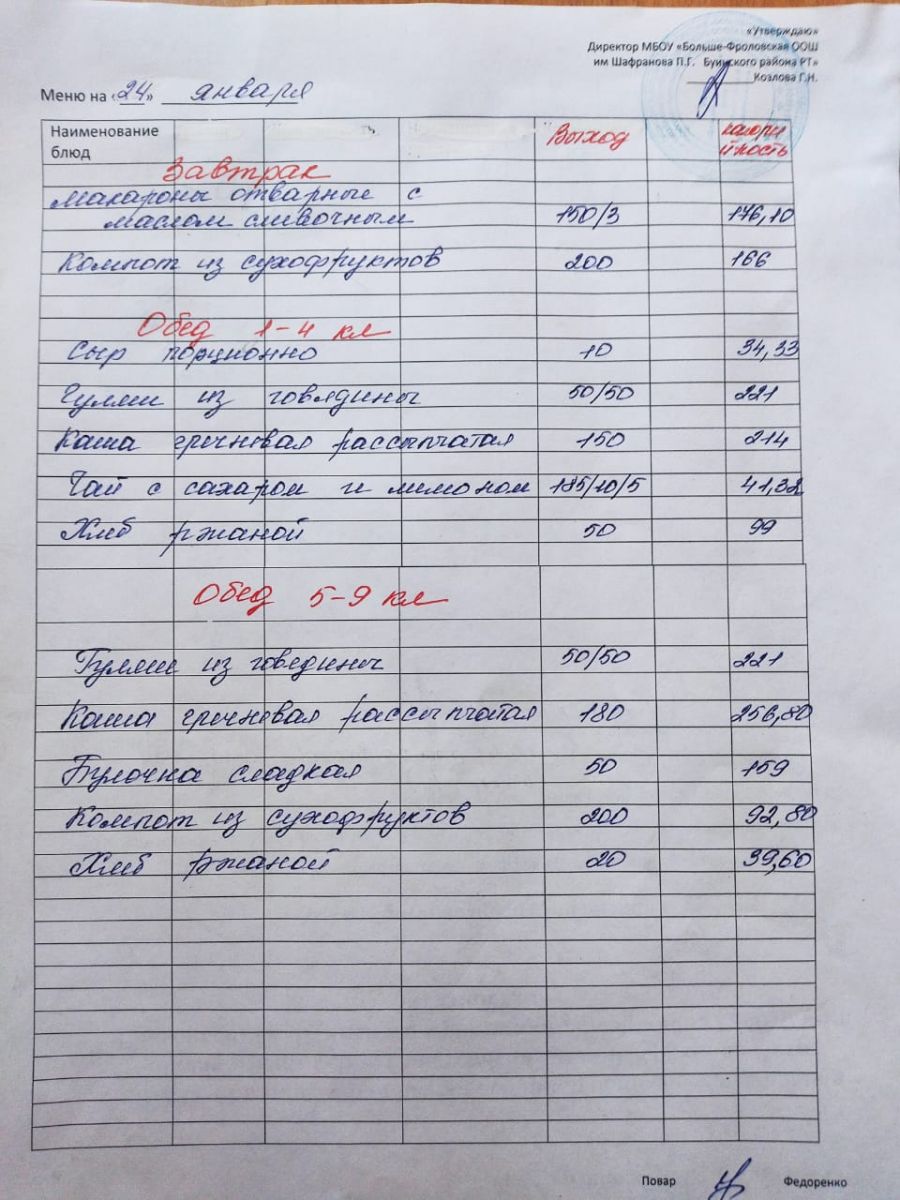 «Утверждаю»
Директор МБОУ «Больше-Фроловская ООШ
им Шафранова П.Г. Буинского района РТ»
Козлова Г.Н.
Меню на «24» января
Наименование блюд Выход калорийность
Завтрак
Макароны отварные с
маслом сливочным 150/3 176,10
Компот из сухофруктов 200 166
Обед 1-4 кл
Сыр порционно 10 34,33
Гуляш из говядины 50/50 221
Каша гречневая рассыпчатая 150 214
Чай с сахаром и лимоном 185/10/5 41,32
Хлеб ржаной 50 99
Обед 5-9 кл
Гуляш из говядины 50/50 221
Каша гречневая рассыпчатая 180 256,80
Булочка сладкая 50 159
Компот из сухофруктов 200 92,80
Хлеб ржаной 20 39,60
Повар Федоренко